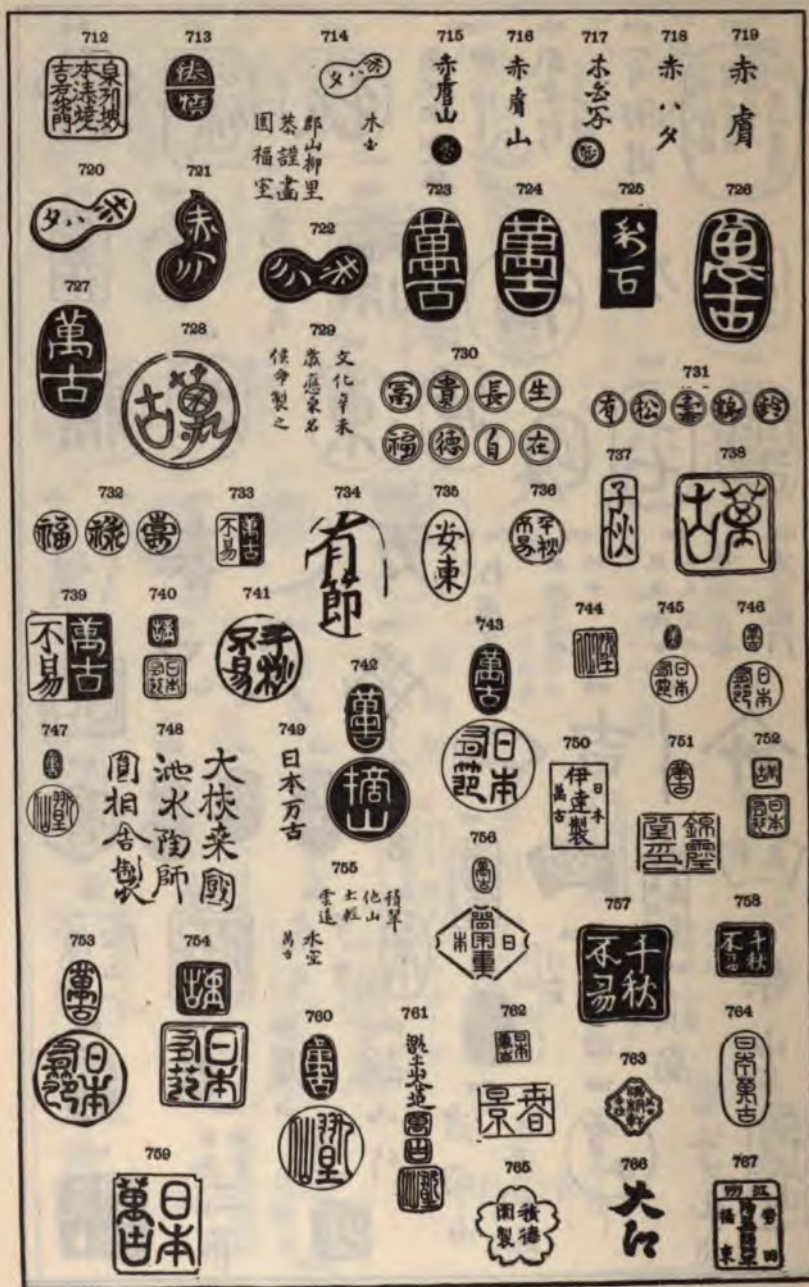 712
713
714
木白
郡山柳里
恭謹畫
圓福室
715
赤膚山
716
赤膚山
717
木白
718
赤ハタ
719
赤膚
720
赤ハタ
721
赤ハタ
722
赤ハタ
723
萬古
724
萬古
725
利百
726
萬古
727
萬古
728
萬古
729
文化辛未
歳應桑名
侯命製之
730
富貴長生
福德自在
731
有松壽鶴鈴
732
福祿壽
733
萬古
不易
734
有節
735
安東
736
千秋
不易
737
千秋
738
萬古
739
萬古
不易
740
日本
有節
741
千秋
不易
742
萬古
摘山
743
萬古
日本
有節
744
745
日本
有節
746
日本
有節
747
748
大
池水陶師
圓相舎製
749
日本万古
750
日本
伊達製
萬古
751
萬古
錦
堂
752
日本
有節
753
萬古
日本
有節
754
日本
有節
755
積翠
他山
土軽
雲遠
水空
萬古
756
萬古
日本
757
千秋
不易
758
千秋
不易
759
日本
萬古
760
萬古
761
萬古
762
日本
萬古
春景
763
764
日本萬古
765
積德
園製
766
大江
767